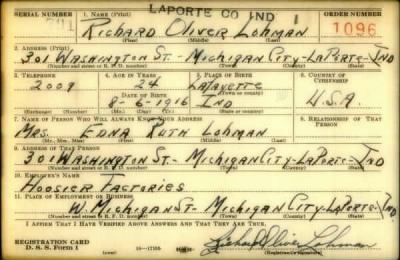 SERIAL NUMBER 1. NAME (Print) LAPORTE CO IND 1 ORDER NUMBER
RICHARD OLIVER LOHMAN 1096
(First) (Middle) (Last)
2. ADDRESS (Print)
301 WASHINGTON ST.- MICHIGAN CITY-LAPORTE-IND
(Number and street or R. F. D. number) (Town) (County) (State)
3. TELEPHONE 4. AGE IN YEARS 5. PLACE OF BIRTH 6. COUNTRY OF CITIZENSHIP
2009 24 LAFAYETTE
DATE OF BIRTH (Town or county)
8-6-1916 IND U.S.A.
(Exchange) (Number) (Mo.) (Day) (Yr.) (State or country)
7. NAME OF PERSON WHO WILL ALWAYS KNOW YOUR ADDRESS 8. RELATIONSHIP OF THAT PERSON
MRS. EDNA RUTH LOHMAN
(Mr., Mrs., Miss) (First) (Middle) (Last)
9. ADDRESS OF THAT PERSON
301 WASHINGTON ST.- MICHIGAN CITY-LAPORTE-IND
(Number and street or R. F. D. number) (Town) (County) (State)
10. EMPLOYER'S NAME
HOOSIER FACTORIES
11. PLACE OF EMPLOYMENT OR BUSINESS
W. MICHIGAN ST- MICHIGAN CITY-LAPORTE-IND
(Number and street or R. F. D. number) (Town) (County) (State)
I AFFIRM THAT I HAVE VERIFIED ABOVE ANSWERS AND THAT THEY ARE TRUE.
REGISTRATION CARD
D. S. S. Form 1 Richard Oliver Lohman